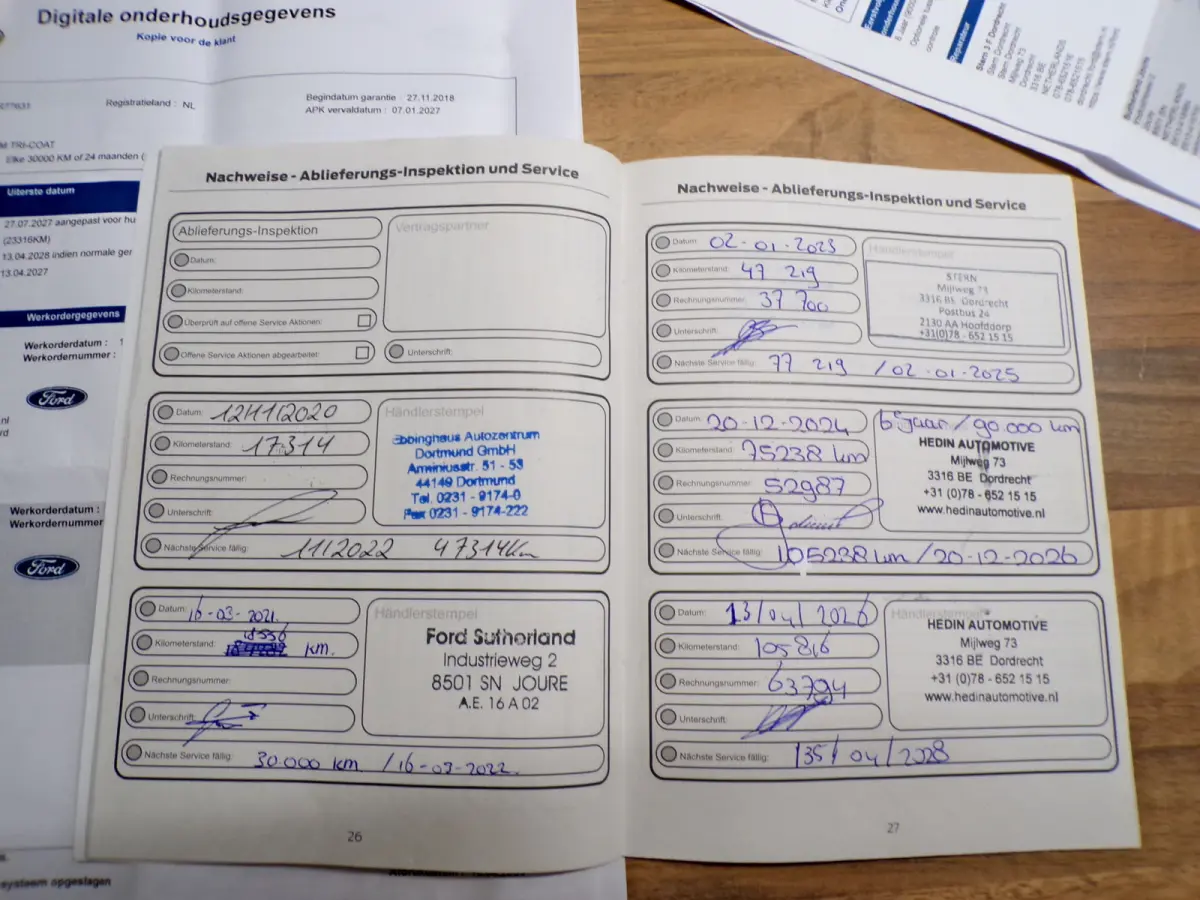 Digitale onderhoudsgegevens
Kopie voor de klant
Registratieland : NL
Begindatum garantie : 27.11.2018
APK vervaldatum : 07.01.2027
TRI-COAT
Elke 30000 KM of 24 maanden (
Uiterste datum
27.07.2027 aangepast voor hu
(23316KM)
13.04.2028 indien normale ger
13.04.2027
Werkordergegevens
Werkorderdatum :
Werkordernummer :
Ford
Werkorderdatum :
Werkordernummer
Ford
systeem opgeslagen
Reparateur
Stern 3 F Dordrecht
Stern Dordrecht
Mijlweg 73
Dordrecht
3316 BE
NETHERLANDS
078-6521516
078-6521515
Nachweise - Ablieferungs-Inspektion und Service
Ablieferungs-Inspektion
Vertragspartner
Datum:
Kilometerstand:
Überprüft auf offene Service Aktionen:
Offene Service Aktionen abgearbeitet:
Unterschrift:
Datum: 12/11/2020
Kilometerstand: 17.314
Rechnungsnummer:
Unterschrift:
Nächste Service fällig: 11/2022 47314Km
Händlerstempel
Ebbinghaus Autozentrum
Dortmund GmbH
Arminiusstr. 51 - 53
44149 Dortmund
Tel. 0231 - 9174-0
Fax 0231 - 9174-222
Datum: 16-03-2021.
Kilometerstand: km.
Rechnungsnummer:
Unterschrift:
Nächste Service fällig: 30.000 km /16-03-2022.
Händlerstempel
Ford Sutherland
Industrieweg 2
8501 SN JOURE
A.E. 16 A 02
26
Nachweise - Ablieferungs-Inspektion und Service
Datum: 02-01-2023
Kilometerstand: 47 219
Rechnungsnummer: 37 700
Unterschrift:
Nächste Service fällig: 77 219 /02-01-2025
Händlerstempel
STERN
Mijlweg 73
3316 BE Dordrecht
Postbus 24
2130 AA Hoofddorp
+31(0)78 - 652 15 15
Datum: 20-12-2024
Kilometerstand: 75238 km
Rechnungsnummer: 52987
Unterschrift:
Nächste Service fällig: 105238 km /20-12-2026
6 jaar / 90 000 km
HEDIN AUTOMOTIVE
Mijlweg 73
3316 BE Dordrecht
+31 (0)78 - 652 15 15
www.hedinautomotive.nl
Datum: 13/04/2026
Kilometerstand: 105816
Rechnungsnummer: 63794
Unterschrift:
Nächste Service fällig: 135/04/2028
Händlerstempel
HEDIN AUTOMOTIVE
Mijlweg 73
3316 BE Dordrecht
+31 (0)78 - 652 15 15
www.hedinautomotive.nl
27